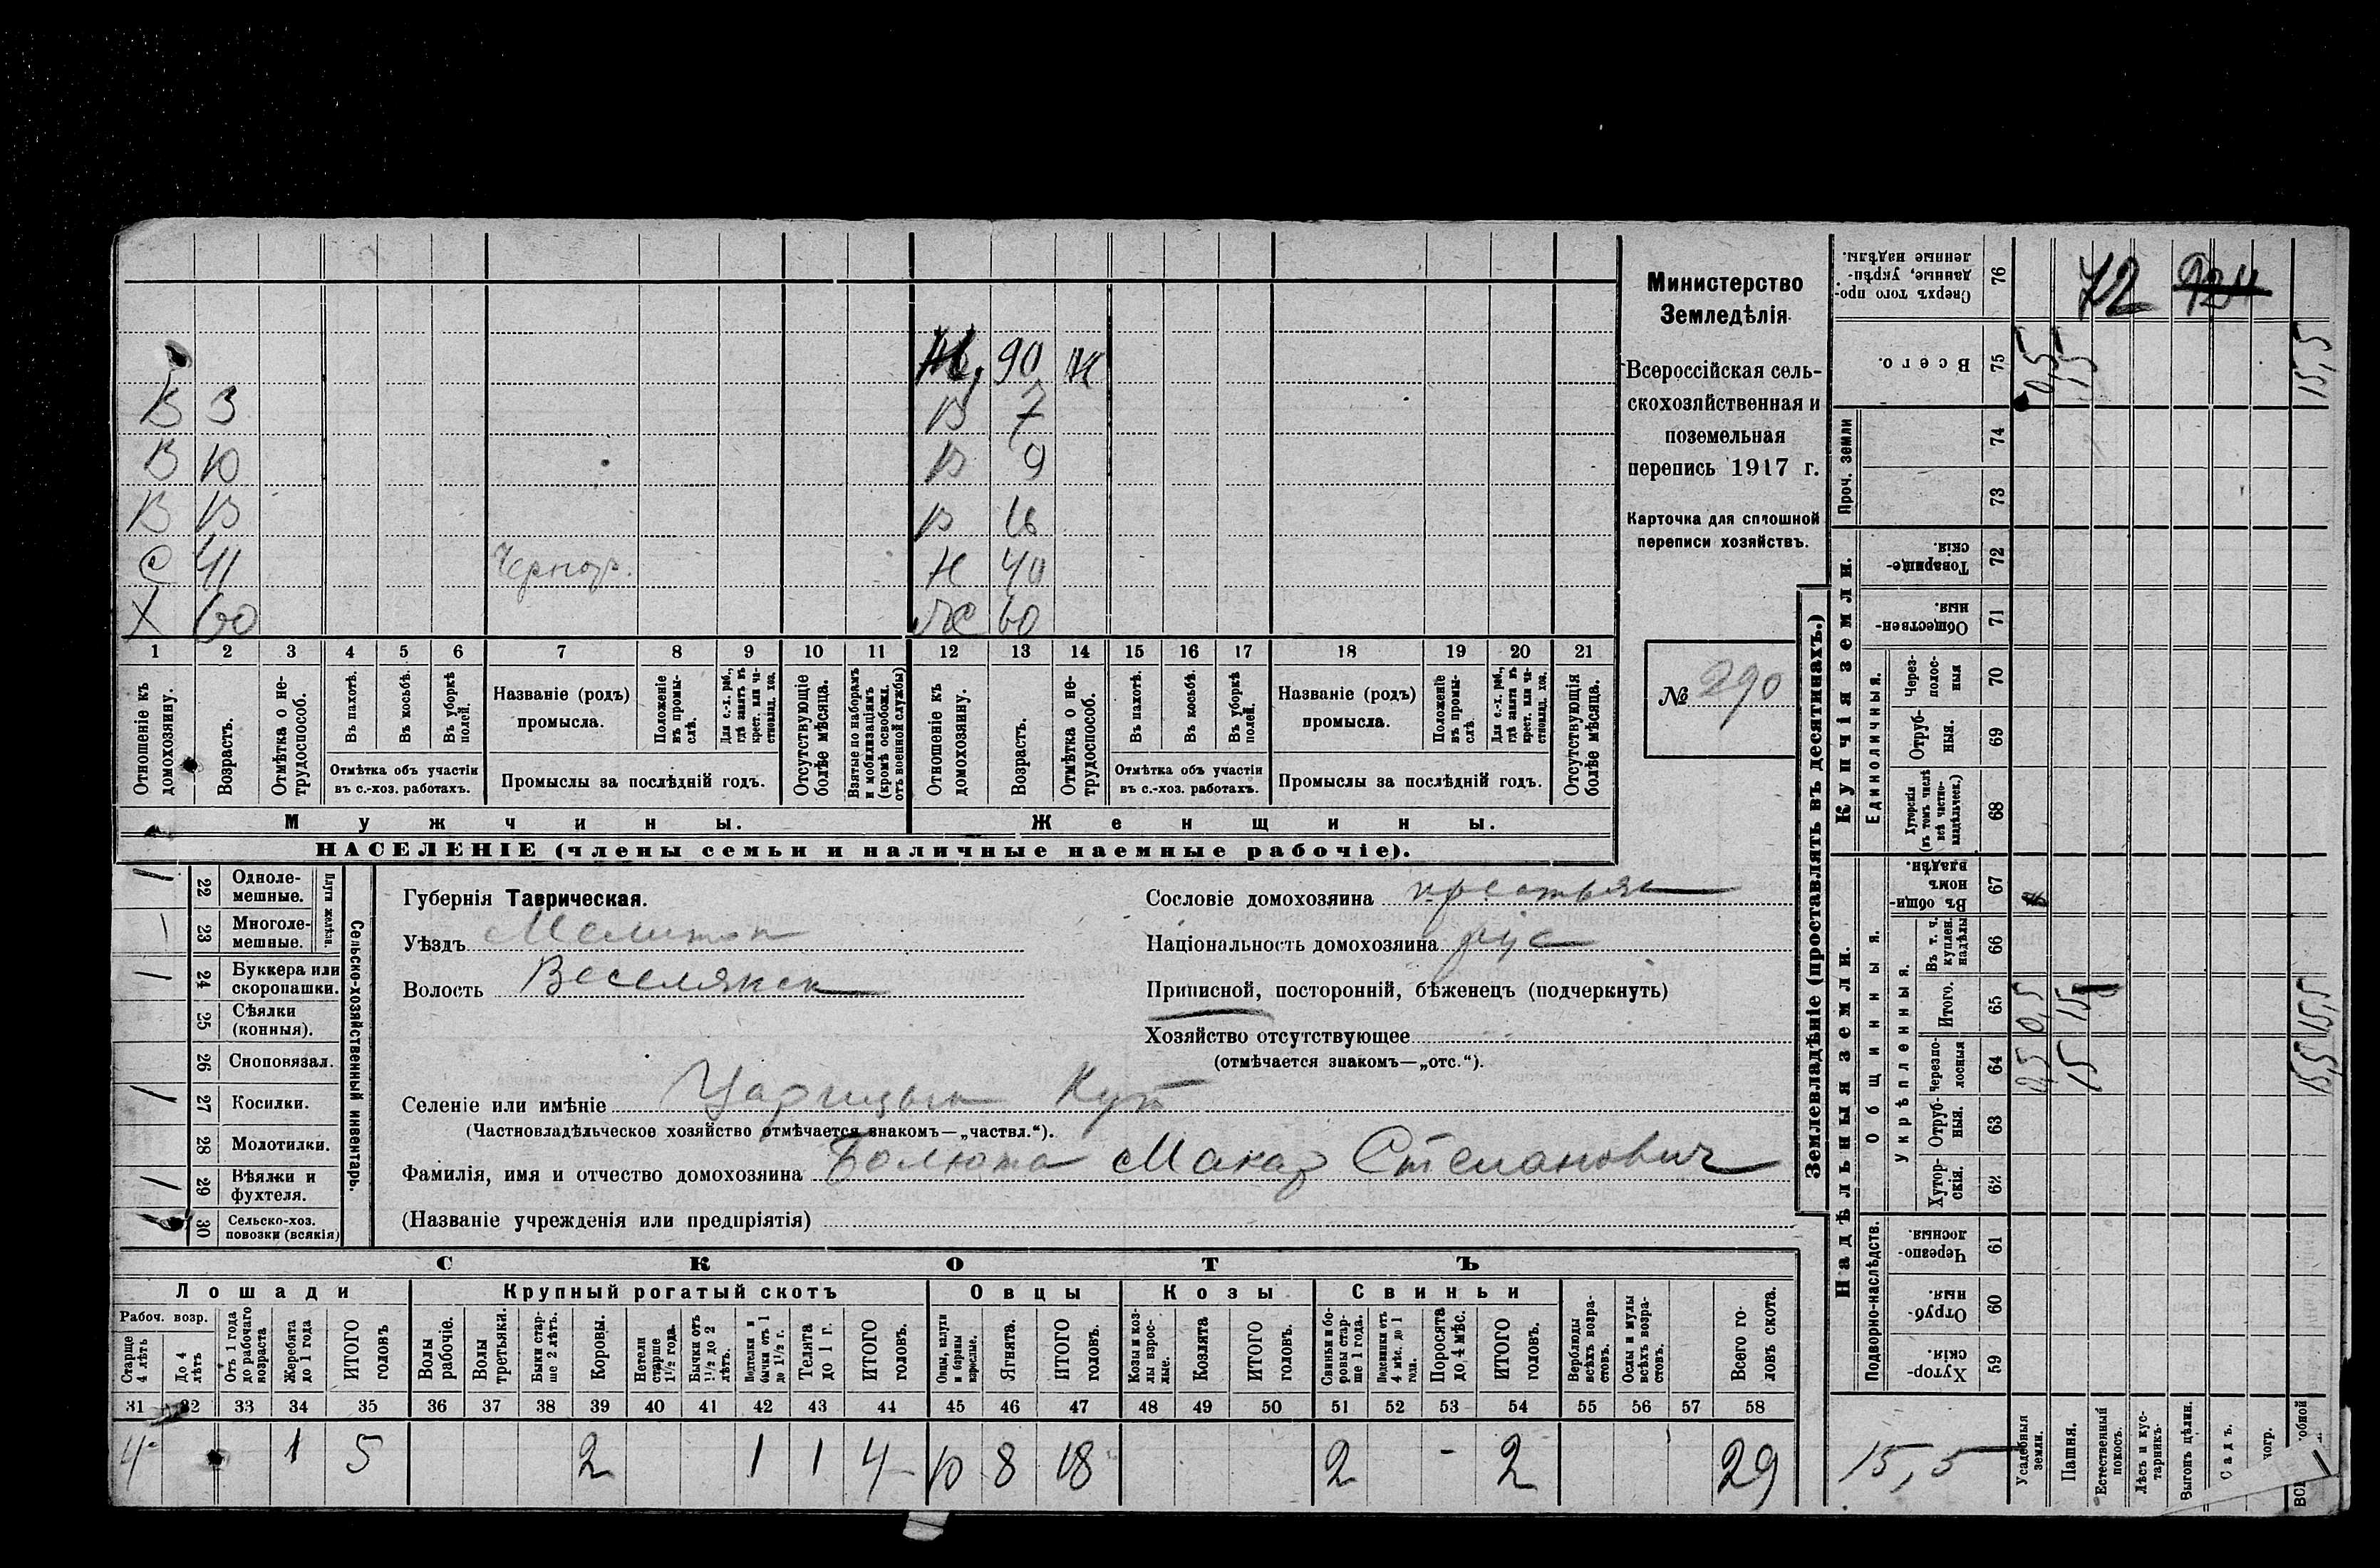 Министерство
Земледѣлія
Всероссійская сель-
скохозяйственная и
поземельная
перепись 1917 г.
Карточка для сплошной
переписи хозяйствъ.
№ 290
90
В 3 В 7
В 10 В 9
В 13 В 16
С 41 Чернор. Н 40
Х 60 Ж 60
1 2 3 4 5 6 7 8 9 10 11 12 13 14 15 16 17 18 19 20 21
Отношеніе къ домохозяину.
Возрастъ.
Отмѣтка о не-трудоспособ.
Въ пахотѣ.
Въ косьбѣ.
Въ уборкѣ полей.
Отмѣтка объ участіи въ с.-хоз. работахъ.
Названіе (родъ) промысла.
Положеніе въ промы-слѣ.
Для с.-х. раб., гдѣ занятъ въ крест. или ча-стновлад. хоз.
Промыслы за послѣдній годъ.
Отсутствующіе болѣе мѣсяца.
Взятые по наборамъ и мобилизаціямъ (кромѣ освобожд. отъ военной службы)
Отношеніе къ домохозяину.
Возрастъ.
Отмѣтка о не-трудоспособ.
Въ пахотѣ.
Въ косьбѣ.
Въ уборкѣ полей.
Отмѣтка объ участіи въ с.-хоз. работахъ.
Названіе (родъ) промысла.
Положеніе въ промы-слѣ.
Для с.-х. раб., гдѣ занята въ крест. или ча-стновлад. хоз.
Промыслы за послѣдній годъ.
Отсутствующія болѣе мѣсяца.
Мужчины. Женщины.
НАСЕЛЕНІЕ (члены семьи и наличные наемные рабочіе).
Сельско-хозяйственный инвентарь.
Плуги желѣзн.
22 Одноле-мешные.
23 Многоле-мешные.
24 Буккера или скоропашки.
25 Сѣялки (конныя).
26 Сноповязал.
27 Косилки.
28 Молотилки.
29 Вѣялки и фухтеля.
30 Сельско-хоз. повозки (всякія)
Губернія Таврическая.
Уѣздъ Мелитоп
Волость Веселянск
Сословіе домохозяина крестьян
Національность домохозяина рус
Приписной, посторонній, бѣженецъ (подчеркнуть)
Хозяйство отсутствующее
(отмѣчается знакомъ—„отс.“).
Селеніе или имѣніе Царицын Кут
(Частновладѣльческое хозяйство отмѣчается знакомъ—„частвл.“).
Фамилія, имя и отчество домохозяина Болюта Макар Степанович
(Названіе учрежденія или предпріятія)
СКОТЪ
Лошади Крупный рогатый скотъ Овцы Козы Свиньи
Рабоч. возр.
Старше 4 лѣтъ
До 4 лѣтъ
Отъ 1 года до рабочаго возраста
Жеребята до 1 года
ИТОГО головъ
Волы рабочіе.
Волы третьяки.
Быки стар-ше 2 лѣтъ.
Коровы.
Нетели старше 1½ года.
Бычки отъ 1½ до 2 лѣтъ.
Подтелки и бычки отъ 1 до 1½ г.
Телята до 1 г.
ИТОГО головъ.
Овцы, валухи и бараны взрослые.
Ягнята.
ИТОГО головъ.
Козы и коз-лы взрос-лые.
Козлята
ИТОГО головъ.
Свиньи и бо-ровы стар-ше 1 года.
Подсвинки отъ 4 мѣс. до 1 года.
Поросята до 4 мѣс.
ИТОГО головъ.
Верблюды всѣхъ возра-стовъ.
Ослы и мулы всѣхъ возра-стовъ.
Всего го-ловъ скота.
31 32 33 34 35 36 37 38 39 40 41 42 43 44 45 46 47 48 49 50 51 52 53 54 55 56 57 58
4 1 5 2 1 1 4 10 8 18 2 - 2 29
Землевладѣніе (проставлять въ десятинахъ.)
Купчія земли.
Надѣльныя земли.
Проч. земли
Единоличныя.
Общинныя.
Укрѣпленныя.
Подворно-наслѣдств.
Сверхъ того про-данные, укрѣп-ленные надѣлы. 76 72
Всего. 75 0,5 15 15,5
74
73
Товарище-скія. 72
Обществен-ныя. 71
Через-полос-ныя 70
Отруб-ныя. 69
Хуторскія (въ томъ числѣ всѣ частно-владѣльческ.) 68
Въ общи-номъ владѣн. 67
Въ т. ч. куплен. надѣлы 66
Итого. 65 0,5 15 15,5
Черезпо-лосныя 64 0,5 15 15,5
Отруб-ныя. 63
Хутор-скія. 62
Черезпо-лосныя. 61
Отруб-ныя. 60
Хутор-скія. 59
15,5
Усадебныя земли.
Пашня.
Естественный покосъ.
Лѣсъ и кус-тарникъ.
Выгонъ цѣлин.
Садъ.
ногр.
обной